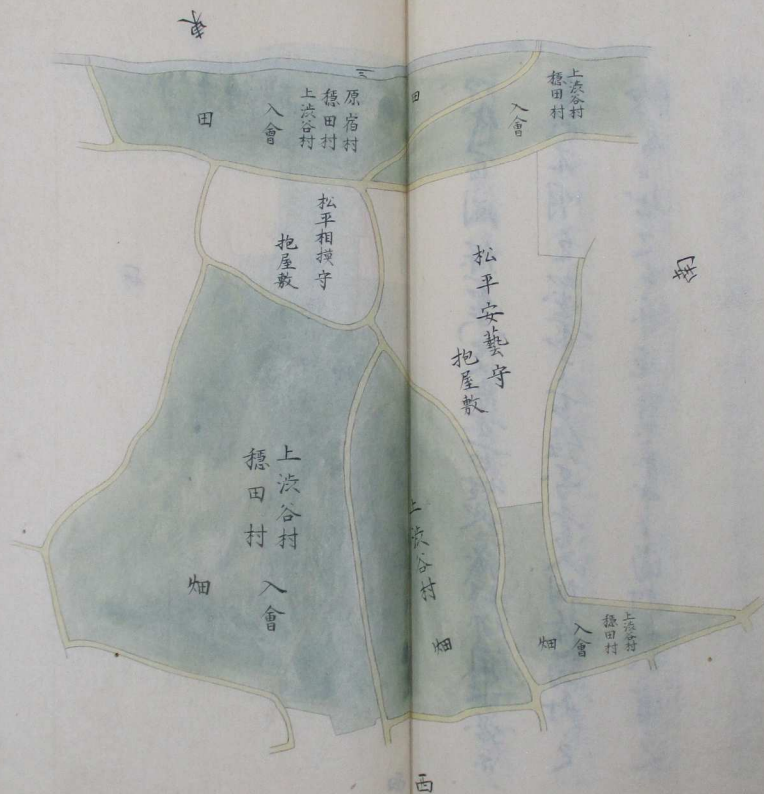 東
上渋谷村
穏田村
入會
田
原宿村
穏田村
上渋谷村
入會
田
松平相模守
抱屋敷
松平安藝守
抱屋敷
上渋谷村
穏田村
入會
畑
上渋谷村
畑
上渋谷村
穏田村
入會
畑
西